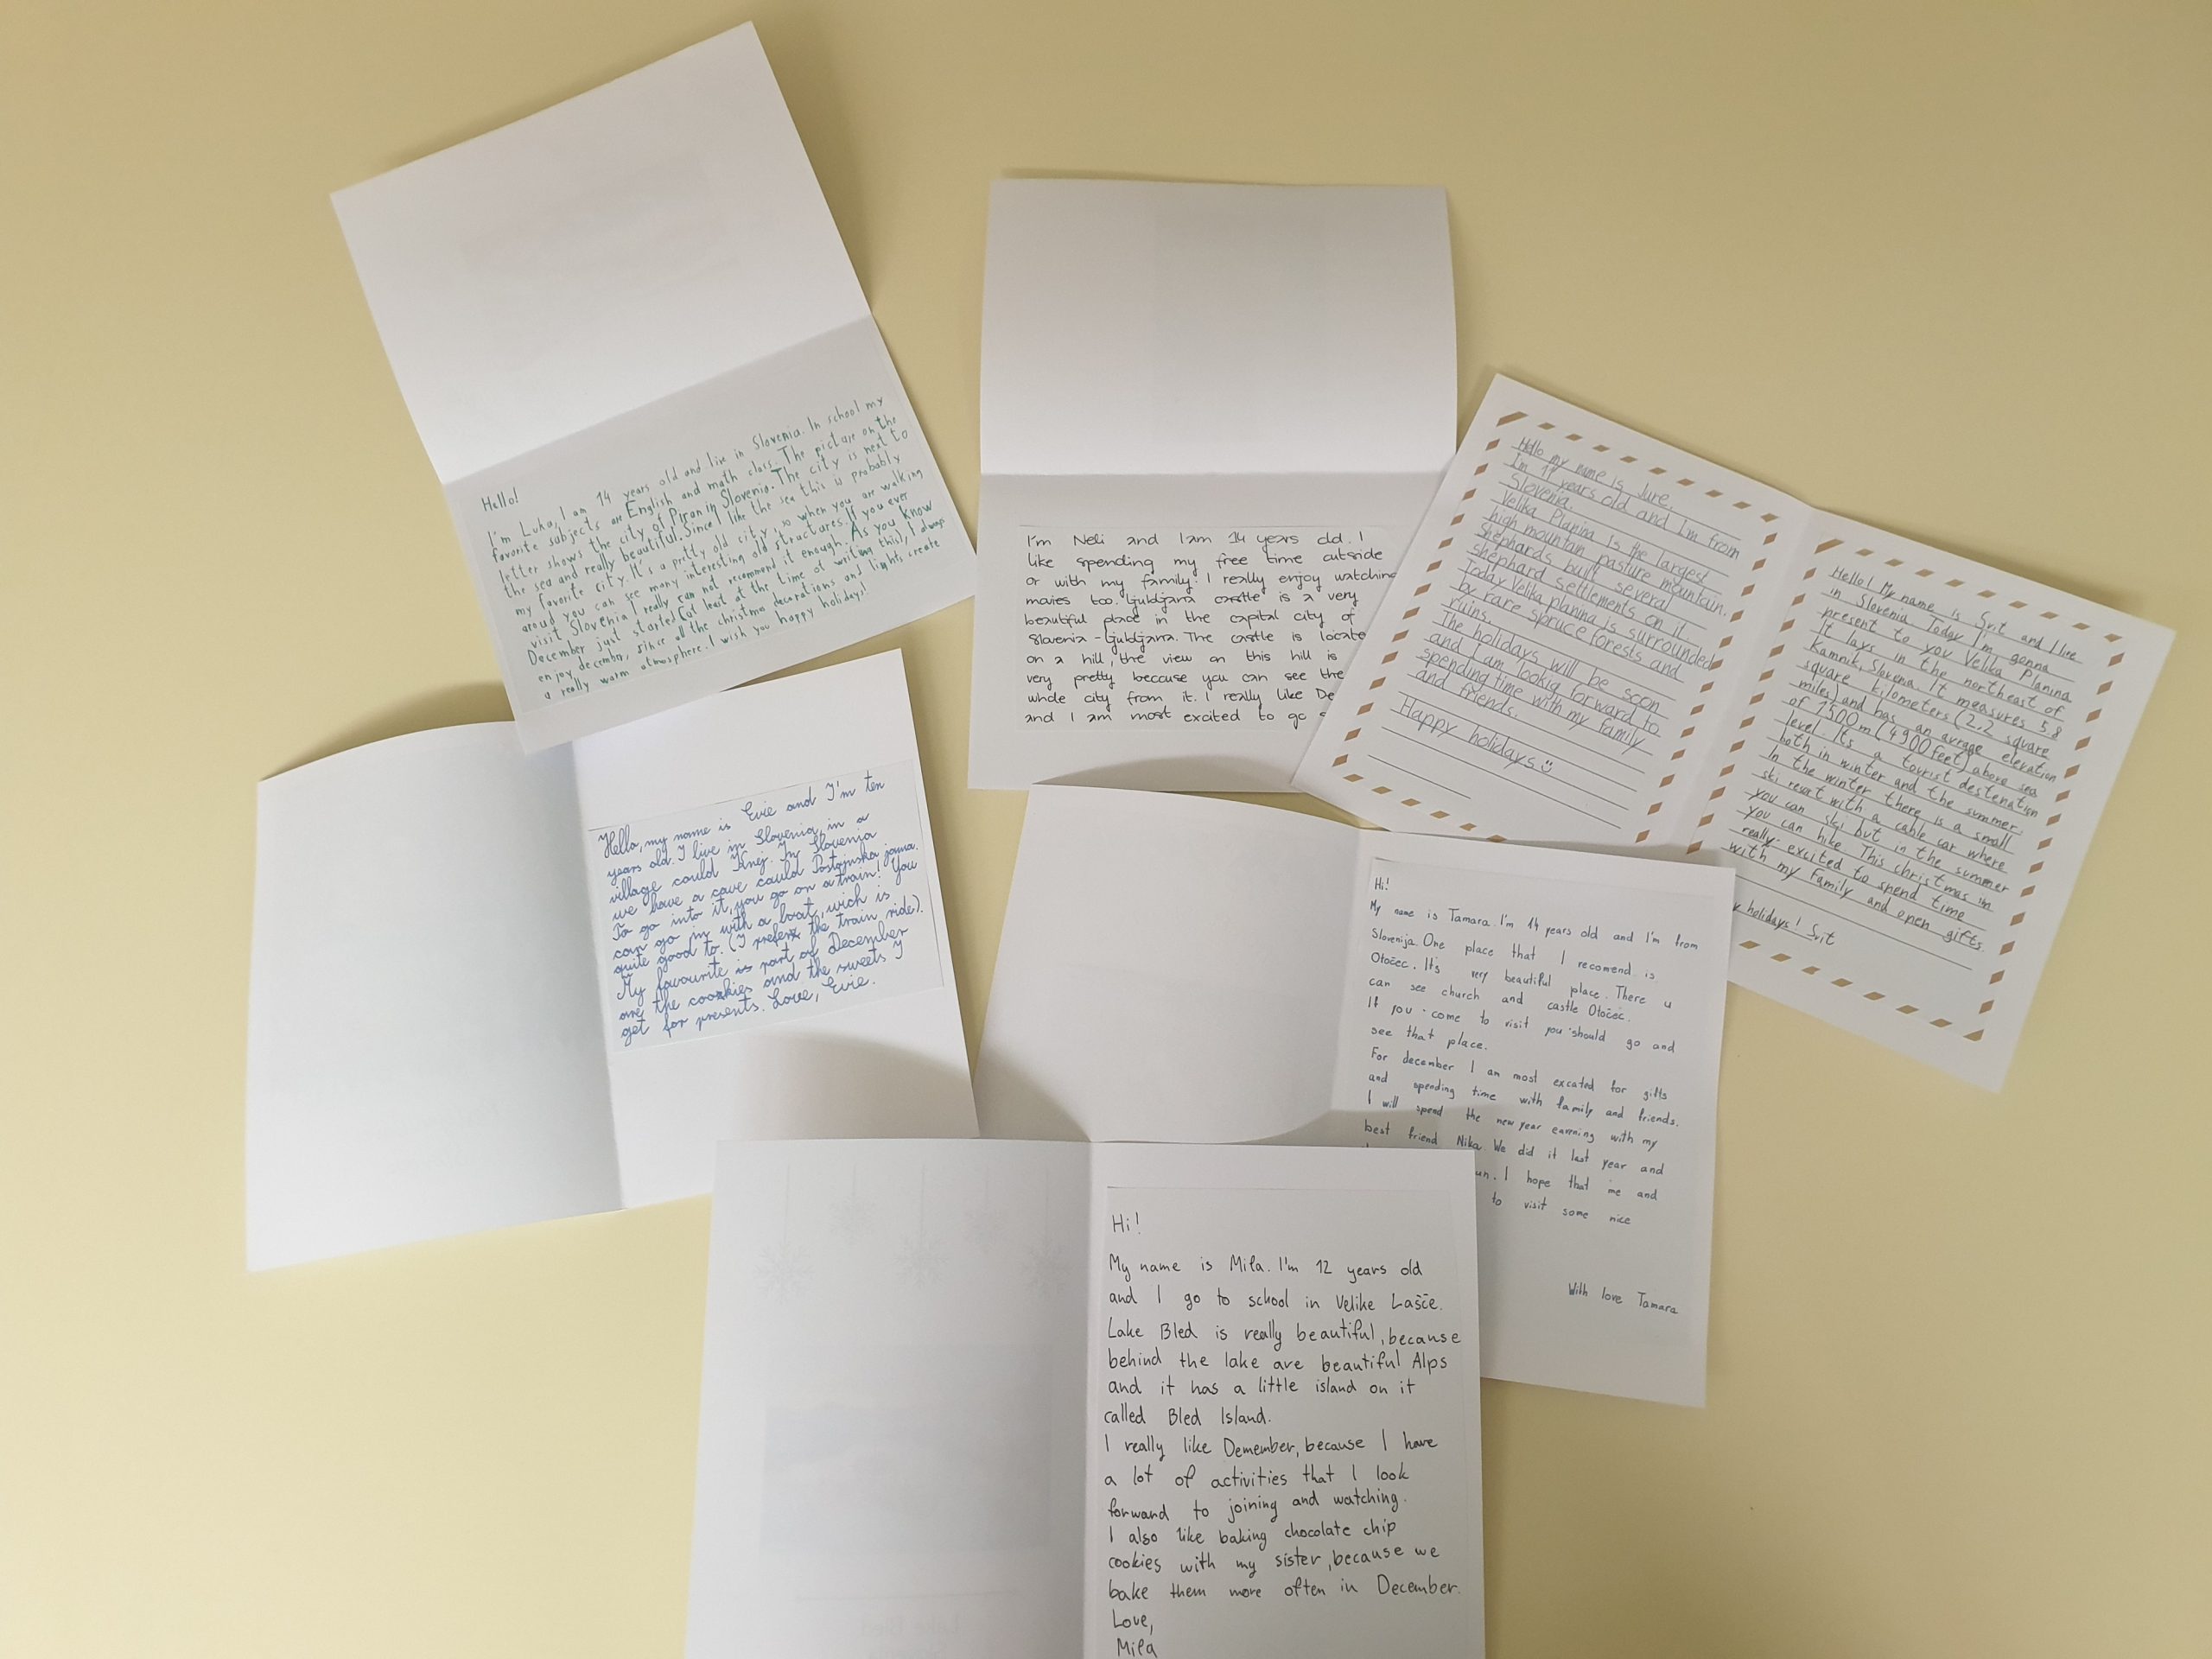 Hello!
I'm Luka, I am 14 years old and live in Slovenia. In school my
favorite subjects are English and math class. The picture on the
letter shows the city of Piran in Slovenia. The city is next to
the sea and really beautiful. Since I like the sea this is probably
my favorite city. It's a pretty old city, so when you are walking
aroud you can see many interesting old structures. If you ever
visit Slovenia I really can not recommend it enough. As you know
December just started (at least at the time of writing this), I always
enjoy december, since all the christmas decorations and lights create
a really warm atmosphere. I wish you happy holidays!
I'm Neli and I am 14 years old. I
like spending my free time outside
or with my family. I really enjoy watching
movies too. Ljubljana castle is a very
beautiful place in the capital city of
Slovenia - Ljubljana. The castle is locate
on a hill, the view on this hill is
very pretty because you can see the
whole city from it. I really like De
and I am most excited to go
Hello my name is Jure.
I'm 14 years old and I'm from
Slovenia.
Velika Planina is the largest
high mountain pasture mountain.
Shephards built several
shephard settlements on it.
Today Velika planina is surrounded
by rare spruce forests and
ruins.
The holidays will be soon
and I am lookig forward to
spending time with my family
and friends.
Happy holidays ☺
Hello! My name is Svit and I live
in Slovenia Today I'm gonna
present to you Velika Planina
It lays in the northeast of
Kamnik, Slovenia It measures 5.8
square kilometers (2.2 square
miles) and has an avrage elevation
of 1500 m (4900 feet) above sea
level. Its a tourist destenation
both in winter and the summer.
In the winter there is a small
ski resort with a cable car where
you can ski but in the summer
you can hike This christmas im
really excited to spend time
with my family and open gifts.
y holidays! Svit
Hello, my name is Evie and I'm ten
years old. I live in Slovenia, in a
village could Knej. In Slovenia
we have a cave could Postojnska jama.
To go into it, you go on a train! You
can go in with a boat, wich is
quite good to. (I prefer the train ride).
My favourite is part of December
are the cookies and the sweets I
get for presents. Love, Evie.
Hi!
My name is Tamara. I'm 14 years old and I'm from
Slovenija. One place that I recomend is
Otočec. It's very beautiful place. There u
can see church and castle Otočec.
If you come to visit you should go and
see that place.
For december I am most excated for gifts
and spending time with family and friends.
I will spend the new year eaening with my
best friend Nika. We did it last year and
un. I hope that me and
to visit some nice
With love Tamara
Hi!
My name is Mila. I'm 12 years old
and I go to school in Velike Lašče.
Lake Bled is really beautiful, because
behind the lake are beautiful Alps
and it has a little island on it
called Bled Island.
I really like Demember, because I have
a lot of activities that I look
forward to joining and watching.
I also like baking chocolate chip
cookies with my sister, because we
bake them more often in December.
Love,
Mila